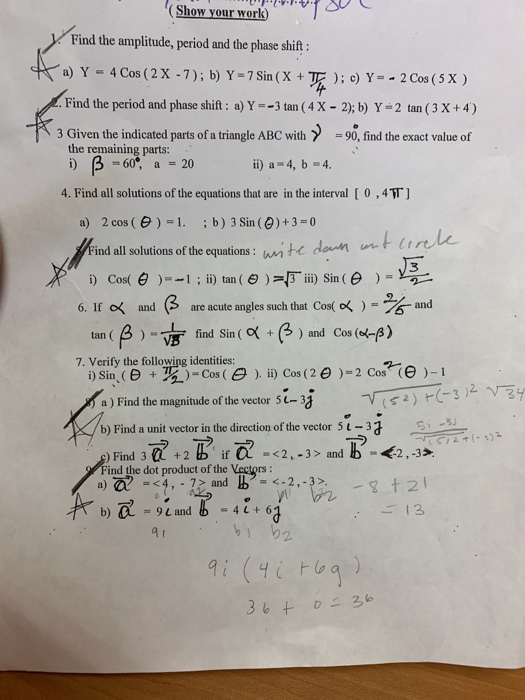 ( Show your work)
1. Find the amplitude, period and the phase shift :
a) Y = 4 Cos ( 2 X - 7 ); b) Y = 7 Sin ( X + π/4 ); c) Y = - 2 Cos ( 5 X )
2. Find the period and phase shift : a) Y = -3 tan ( 4 X - 2); b) Y = 2 tan ( 3 X + 4 )
3 Given the indicated parts of a triangle ABC with γ = 90°, find the exact value of
the remaining parts:
i) β = 60°, a = 20 ii) a = 4, b = 4.
4. Find all solutions of the equations that are in the interval [ 0 , 4π ]
a) 2 cos ( θ ) = 1. ; b ) 3 Sin ( θ ) + 3 = 0
Find all solutions of the equations : write down unit circle
i) Cos( θ ) = - 1 ; ii) tan ( θ ) = √3 iii) Sin ( θ ) = √3/2
6. If α and β are acute angles such that Cos( α ) = 2/5 and
tan ( β ) = 1/√3 find Sin ( α + β ) and Cos (α-β)
7. Verify the following identities:
i) Sin ( θ + π/2 ) = Cos ( θ ). ii) Cos ( 2 θ ) = 2 Cos² ( θ ) - 1
a ) Find the magnitude of the vector 5i - 3j √(5²) + (-3)² √34
b) Find a unit vector in the direction of the vector 5i - 3j 5i - 3j / √(5)2 + (-3)2
c) Find 3 a + 2 b if a = < 2, - 3 > and b = < -2 , -3 >.
9. Find the dot product of the Vectors :
a) a = < 4, - 7 > and b = < - 2, - 3 >. -8 + 21
b) a = 9 i and b = 4 i + 6j = 13
a1 b1 b2
9i ( 4i + 6j )
36 + 0 = 36